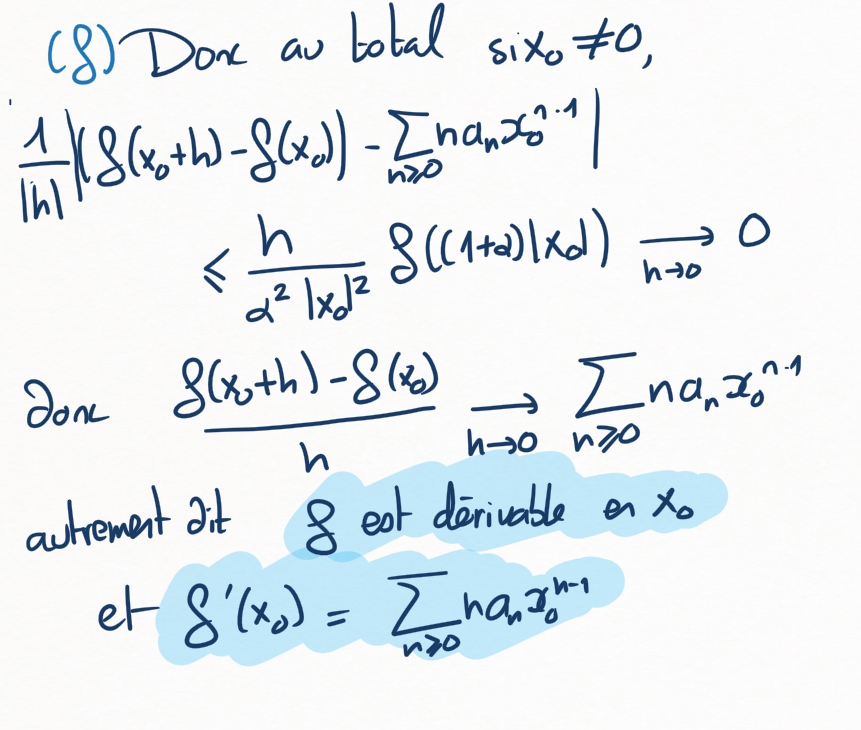 (f) Donc au total si x₀ ≠ 0,
1/|h| |(f(x₀+h) - f(x₀)) - ∑_{n≥0} n aₙ x₀^{n-1}|
≤ h/(α² |x₀|²) f((1+α)|x₀|) ⟶_{h→0} 0
donc (f(x₀+h) - f(x₀))/h ⟶_{h→0} ∑_{n≥0} n aₙ x₀^{n-1}
autrement dit f est dérivable en x₀
et f'(x₀) = ∑_{n≥0} n aₙ x₀^{n-1}